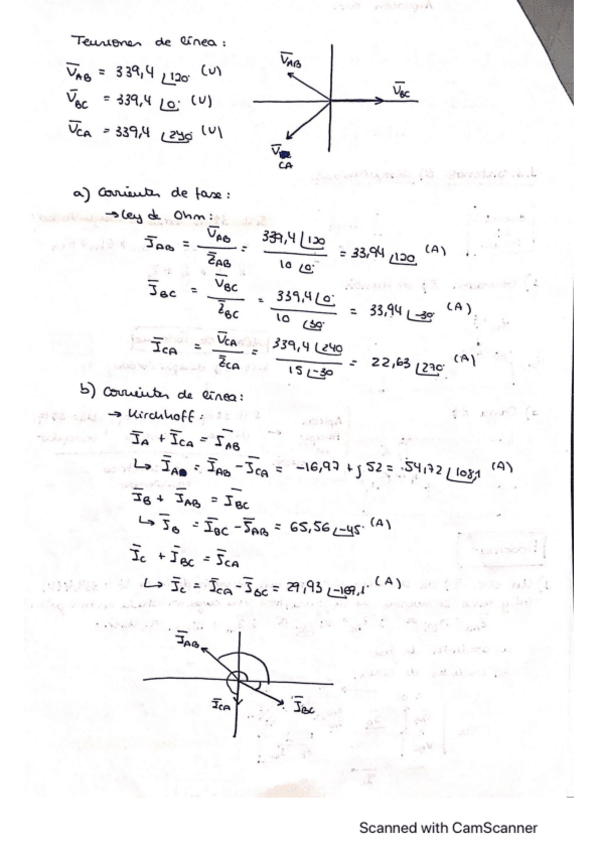 Tensiones de línea:
V̅AB = 339,4 ∠120° (V)
V̅BC = 339,4 ∠0° (V)
V̅CA = 339,4 ∠240° (V)
V̅AB
V̅BC
V̅CA
a) Corrientes de fase:
→ Ley de Ohm:
I̅AB = V̅AB / Z̅AB = 339,4 ∠120 / 10 ∠0° = 33,94 ∠120° (A)
I̅BC = V̅BC / Z̅BC = 339,4 ∠0° / 10 ∠30° = 33,94 ∠-30 (A)
I̅CA = V̅CA / Z̅CA = 339,4 ∠240 / 15 ∠-30 = 22,63 ∠270° (A)
b) Corrientes de línea:
→ Kirchhoff:
I̅A + I̅CA = I̅AB
↳ I̅A = I̅AB - I̅CA = -16,97 + j 52 = 54,72 ∠108,1 (A)
I̅B + I̅AB = I̅BC
↳ I̅B = I̅BC - I̅AB = 65,56 ∠-45° (A)
I̅C + I̅BC = I̅CA
↳ I̅C = I̅CA - I̅BC = 29,93 ∠-169,1° (A)
I̅AB
I̅CA
I̅BC
Scanned with CamScanner